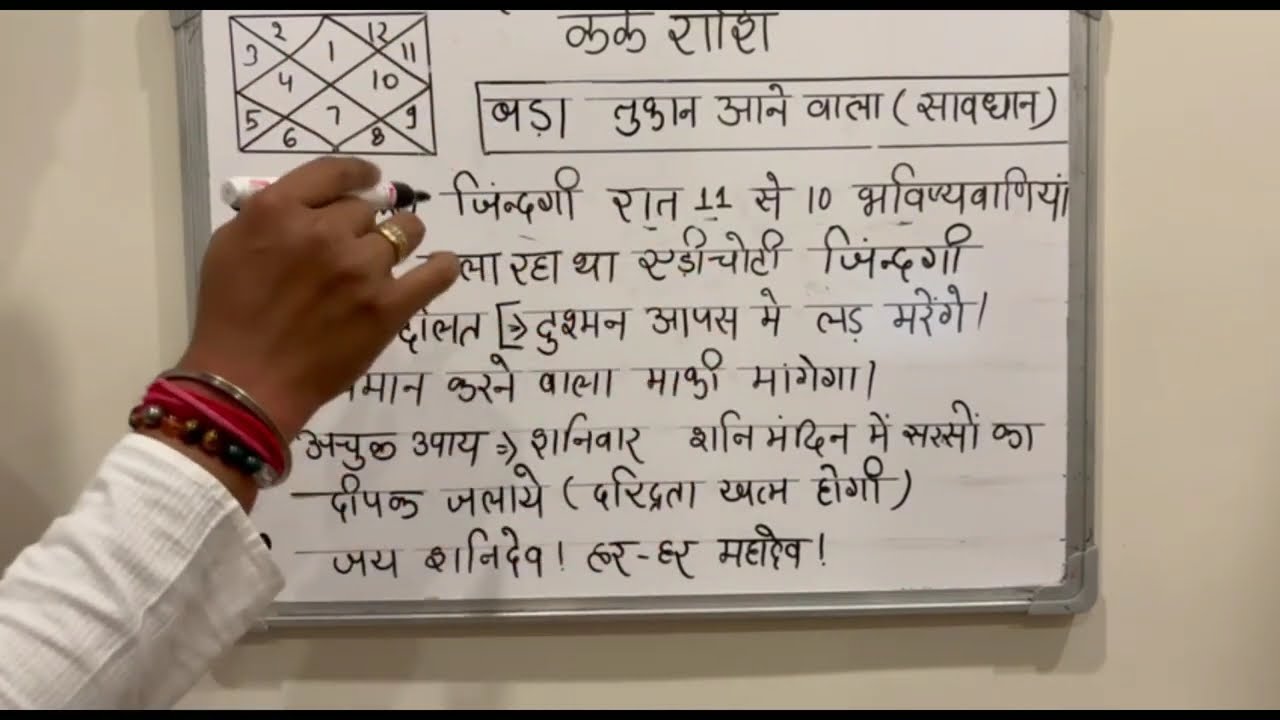 2 12
3 1 11
4 10
5 7 9
6 8
कर्क राशि
बड़ा तुफान आने वाला ( सावधान )
जिंन्दगी रात 11 से 10 भविष्यवाणियां
ला रहा था एड़ीचोटी जिंन्दगी
दौलत [⇒ दुश्मन आपस मे लड़ मरेंगे।
मान करने वाला माफी मांगेगा।
अचुक उपाय ⇒ शनिवार शनि मंदिन में सरसों का
दीपक जलाये ( दरिद्रता खत्म होगी )
जय शनिदेव! हर-हर महादेव!